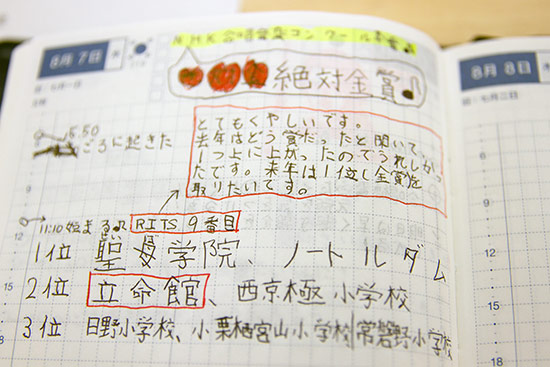 NHK全国音楽コンクール本番♪
8月7日
8月8日
絶対金賞
とてもくやしいです。
去年はどう賞だったと聞いて、
1つ上に上がったのでうれしかっ
たです。来年は1位(金賞)を
取りたいです。
5:50
ごろに起きた
11:10始まる♪
RITS 9番目
1位 聖母学院、ノートルダム
2位 立命館、西京極小学校
3位 日野小学校、小栗栖宮山小学校、常磐野小学校